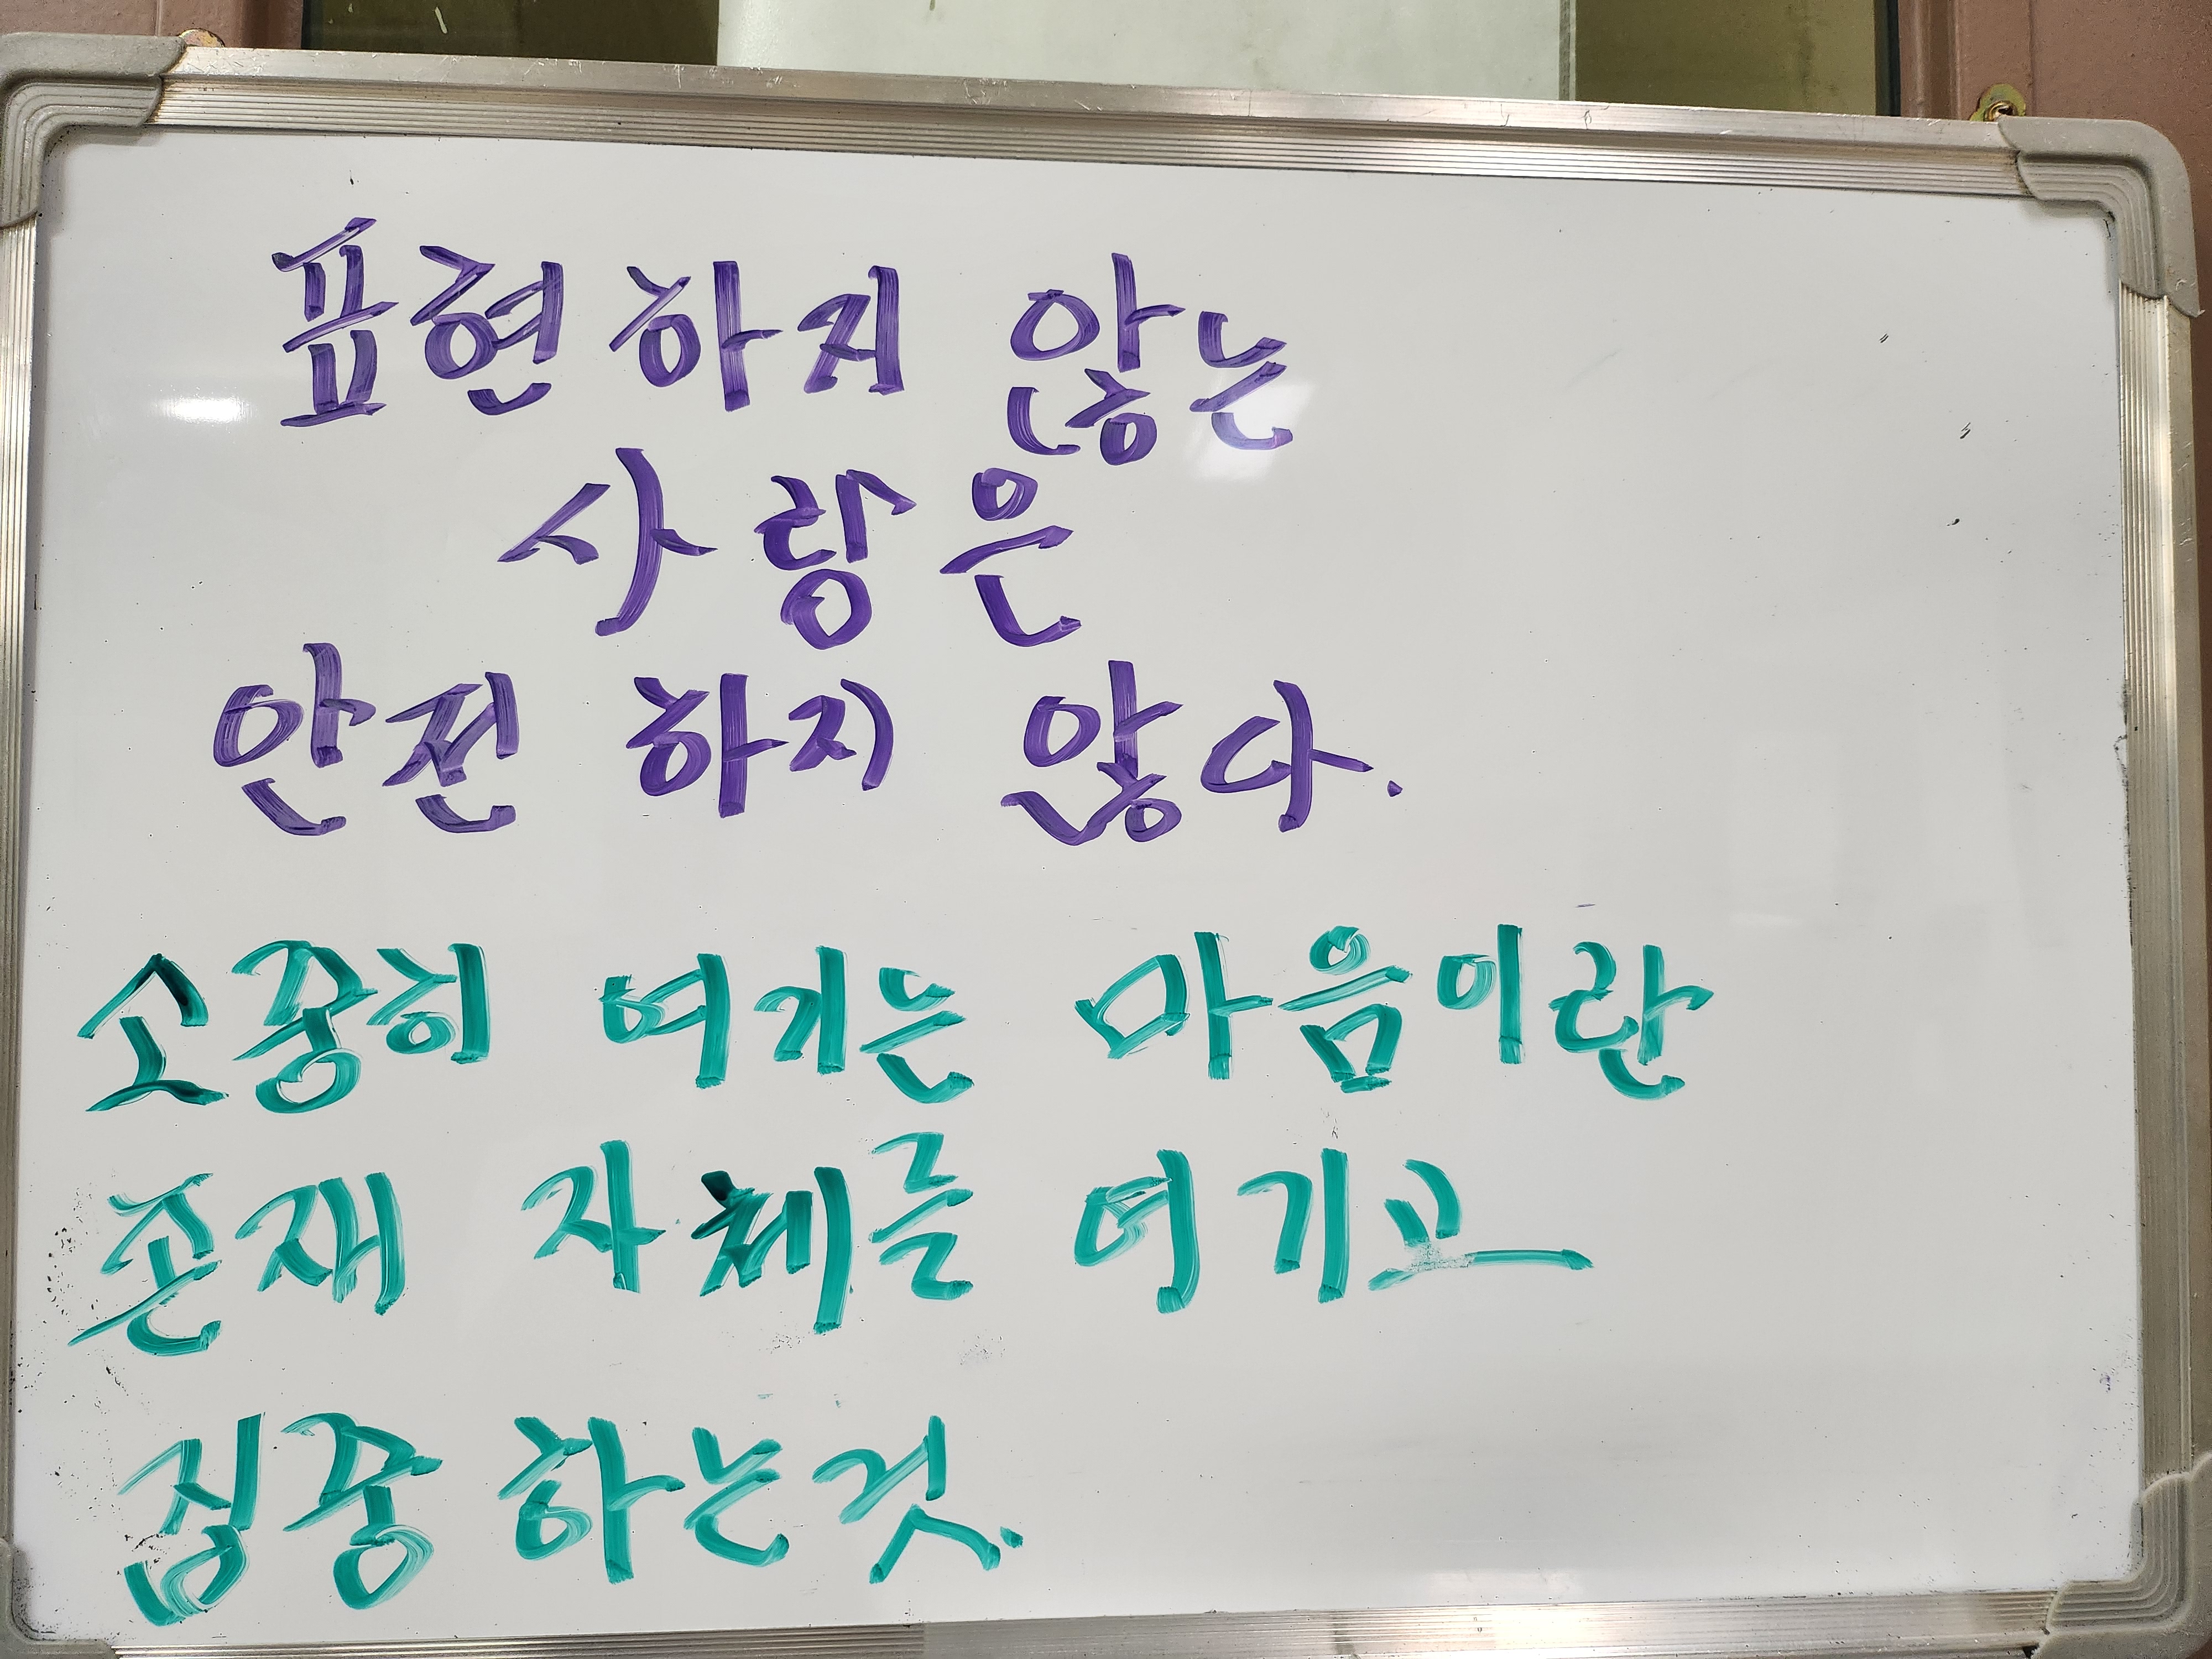 표현하지 않는
사랑은
안전하지 않다.
소중히 여기는 마음이란
존재 자체를 여기고
집중 하는것.